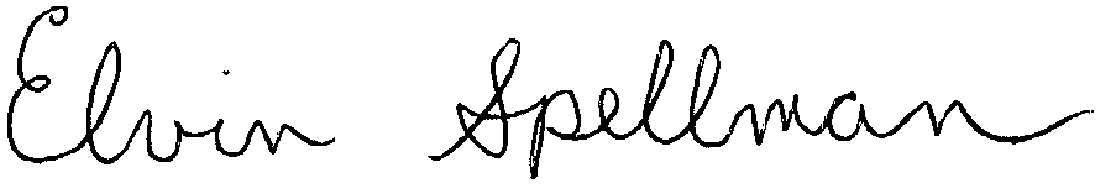 Elvin Spellman